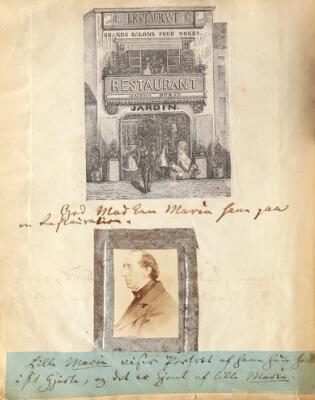 RESTAURANT
GRANDS SALONS POUR NOCES.
RESTAURANT
JARDIN.
God Mad kan Maria faae paa
en Restauration.
Lille Maria viser Portræt af ham hun har
i sit Hjerte, og det er kjønt af lille Maria.